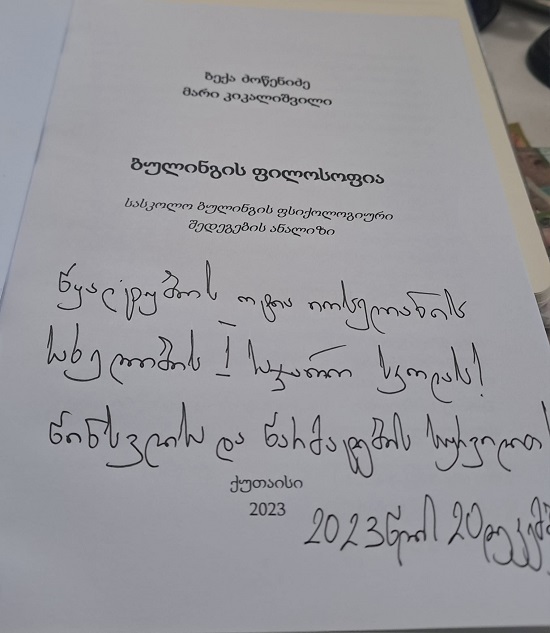 ბექა მოწენიძე
მარი კიკალიშვილი
ბულინგის ფილოსოფია
სასკოლო ბულინგის ფსიქოლოგიური
შედეგების ანალიზი
წყალტუბოს ოტია იოსელიანის
სახელობის I საჯარო სკოლას!
წინსვლისა და წარმატების სურვილით
ქუთაისი
2023
2023 წლის 20